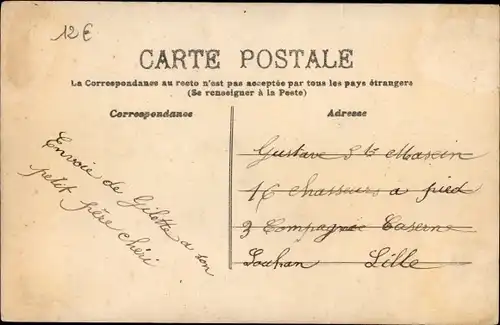 12€
CARTE POSTALE
La Correspondance au recto n'est pas acceptée par tous les pays étrangers
(Se renseigner à la Poste)
Correspondance
Adresse
Envoie de Gilotte a son
petit père chéri
Gustave
16 chasseurs a pied
3 Compagnie Caserne
Lille